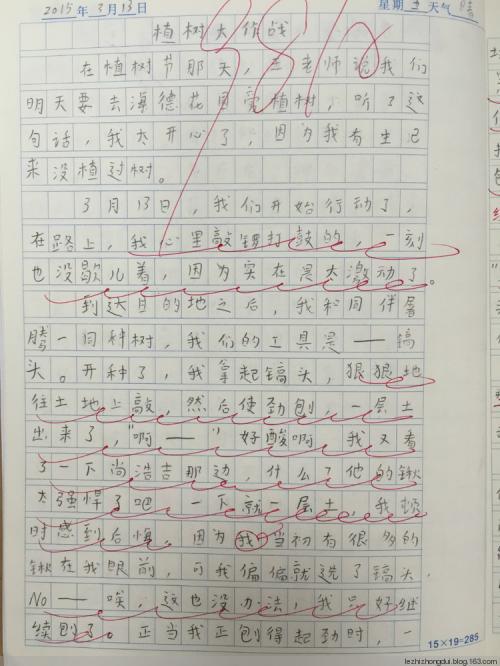 2015年3月13日 星期五天气晴
植树大作战
在植树节那天,王老师说我们
明天要去海德花园旁植树,听了这
句话,我太开心了,因为我有生已
来没植过树。
3月13日,我们开始行动了,
在路上,我心里敲锣打鼓的,一刻
也没歇儿着,因为实在是太激动了。
到达目的地之后,我和同伴曼
腾一同种树,我们的工具是——镐
头。开种了,我拿起镐头,狠狠地
往土地上敲,然后使劲刨,一层土
出来了,"啊——"好酸啊,我又看
了一下尚浩吉那边,什么?他的锹
太强悍了吧,一下就一层土,我顿
时感到后悔,因为我当初有很多的
锹在我眼前,可我偏偏就选了镐头,
No——唉,这也没办法,我只好继
续刨了。正当我正刨得起劲时,一
15×19=285
lezhizhongdui.blog.163.com